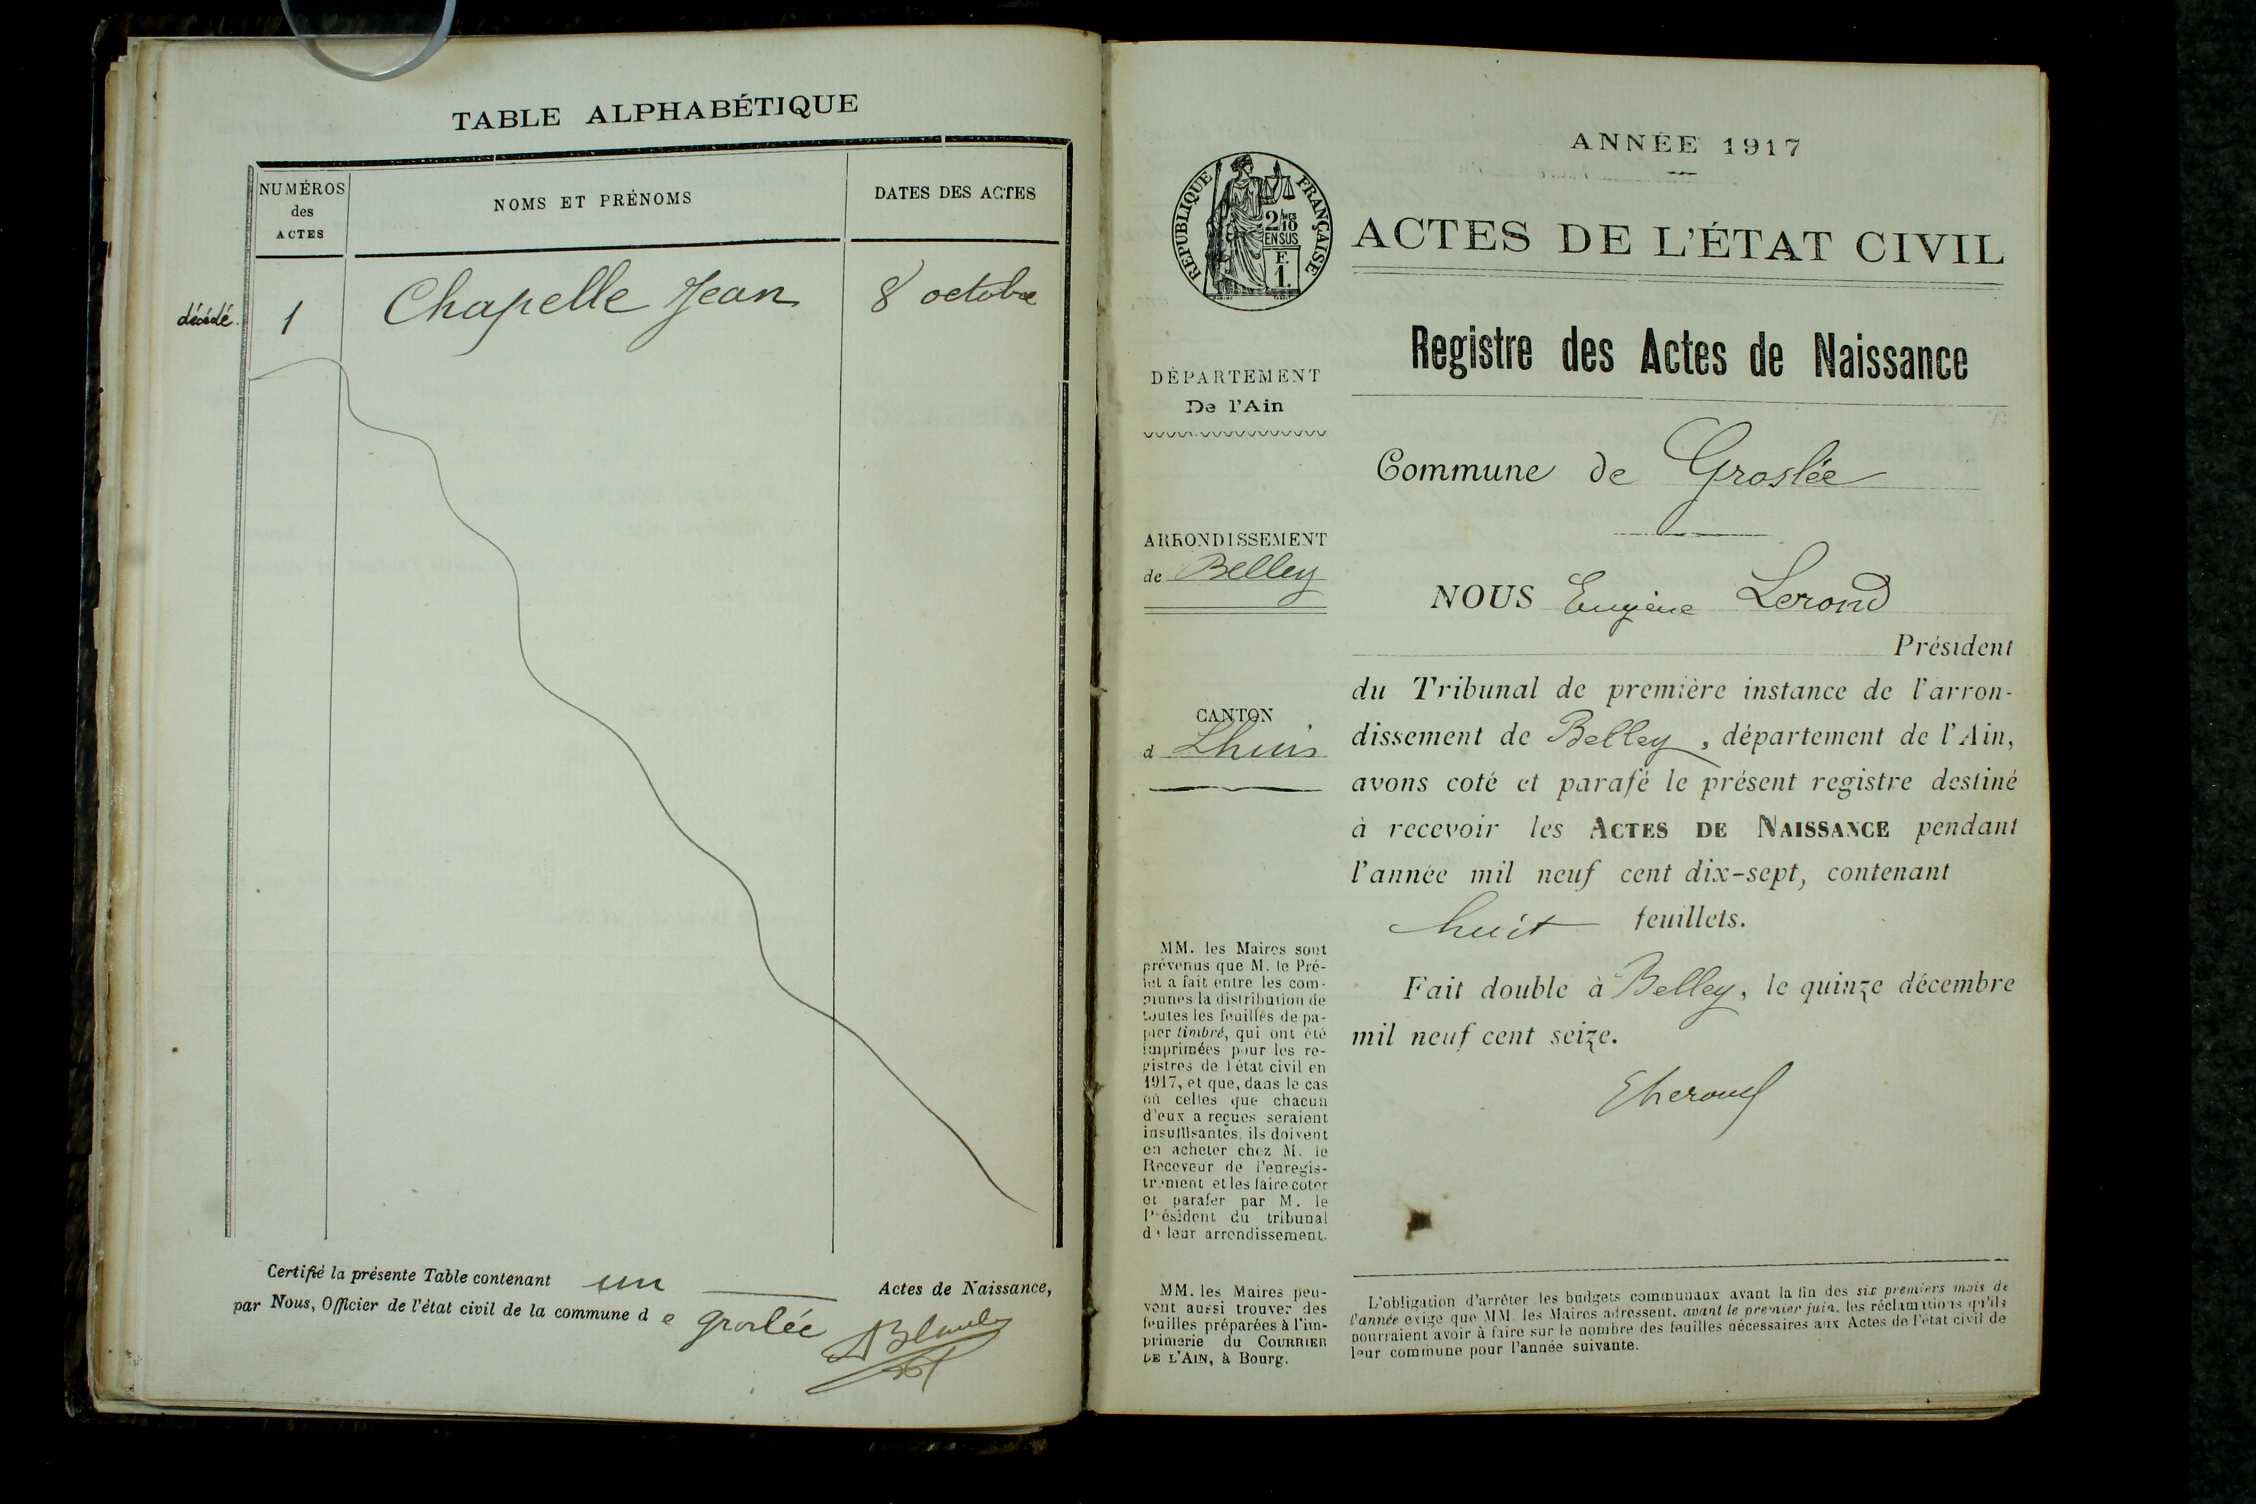 TABLE ALPHABÉTIQUE
NUMÉROS
des
ACTES
NOMS ET PRÉNOMS
DATES DES ACTES
décédé
1
Chapelle Jean
8 octobre
Certifié la présente Table contenant un Actes de Naissance,
par Nous, Officier de l'état civil de la commune d e Groslée
ANNÉE 1917
RÉPUBLIQUE FRANÇAISE
2/10
EN SUS
F.
1.
ACTES DE L'ÉTAT CIVIL
Registre des Actes de Naissance
DÉPARTEMENT
De l'Ain
ARRONDISSEMENT
de Belley
CANTON
d Lhuis
MM. les Maires sont
prévenus que M. le Pré-
fet a fait entre les com-
munes la distribution de
toutes les feuilles de pa-
pier timbré, qui ont été
imprimées pour les re-
gistres de l'état civil en
1917, et que, dans le cas
où celles que chacun
d'eux a reçues seraient
insuffisantes, ils doivent
en acheter chez M. le
Receveur de l'enregis-
trement et les faire coter
et parafer par M. le
Président du tribunal
de leur arrondissement.
MM. les Maires peu-
vent aussi trouver des
feuilles préparées à l'im-
primerie du COURRIER
DE L'AIN, à Bourg.
Commune de Groslée
NOUS Eugène Lerond
Président
du Tribunal de première instance de l'arron-
dissement de Belley, département de l'Ain,
avons coté et parafé le présent registre destiné
à recevoir les ACTES DE NAISSANCE pendant
l'année mil neuf cent dix-sept, contenant
huit feuillets.
Fait double à Belley, le quinze décembre
mil neuf cent seize.
L'obligation d'arrêter les budgets communaux avant la fin des six premiers mois de
l'année exige que MM. les Maires adressent, avant le premier juin, les réclamations qu'ils
pourraient avoir à faire sur le nombre des feuilles nécessaires aux Actes de l'état civil de
leur commune pour l'année suivante.